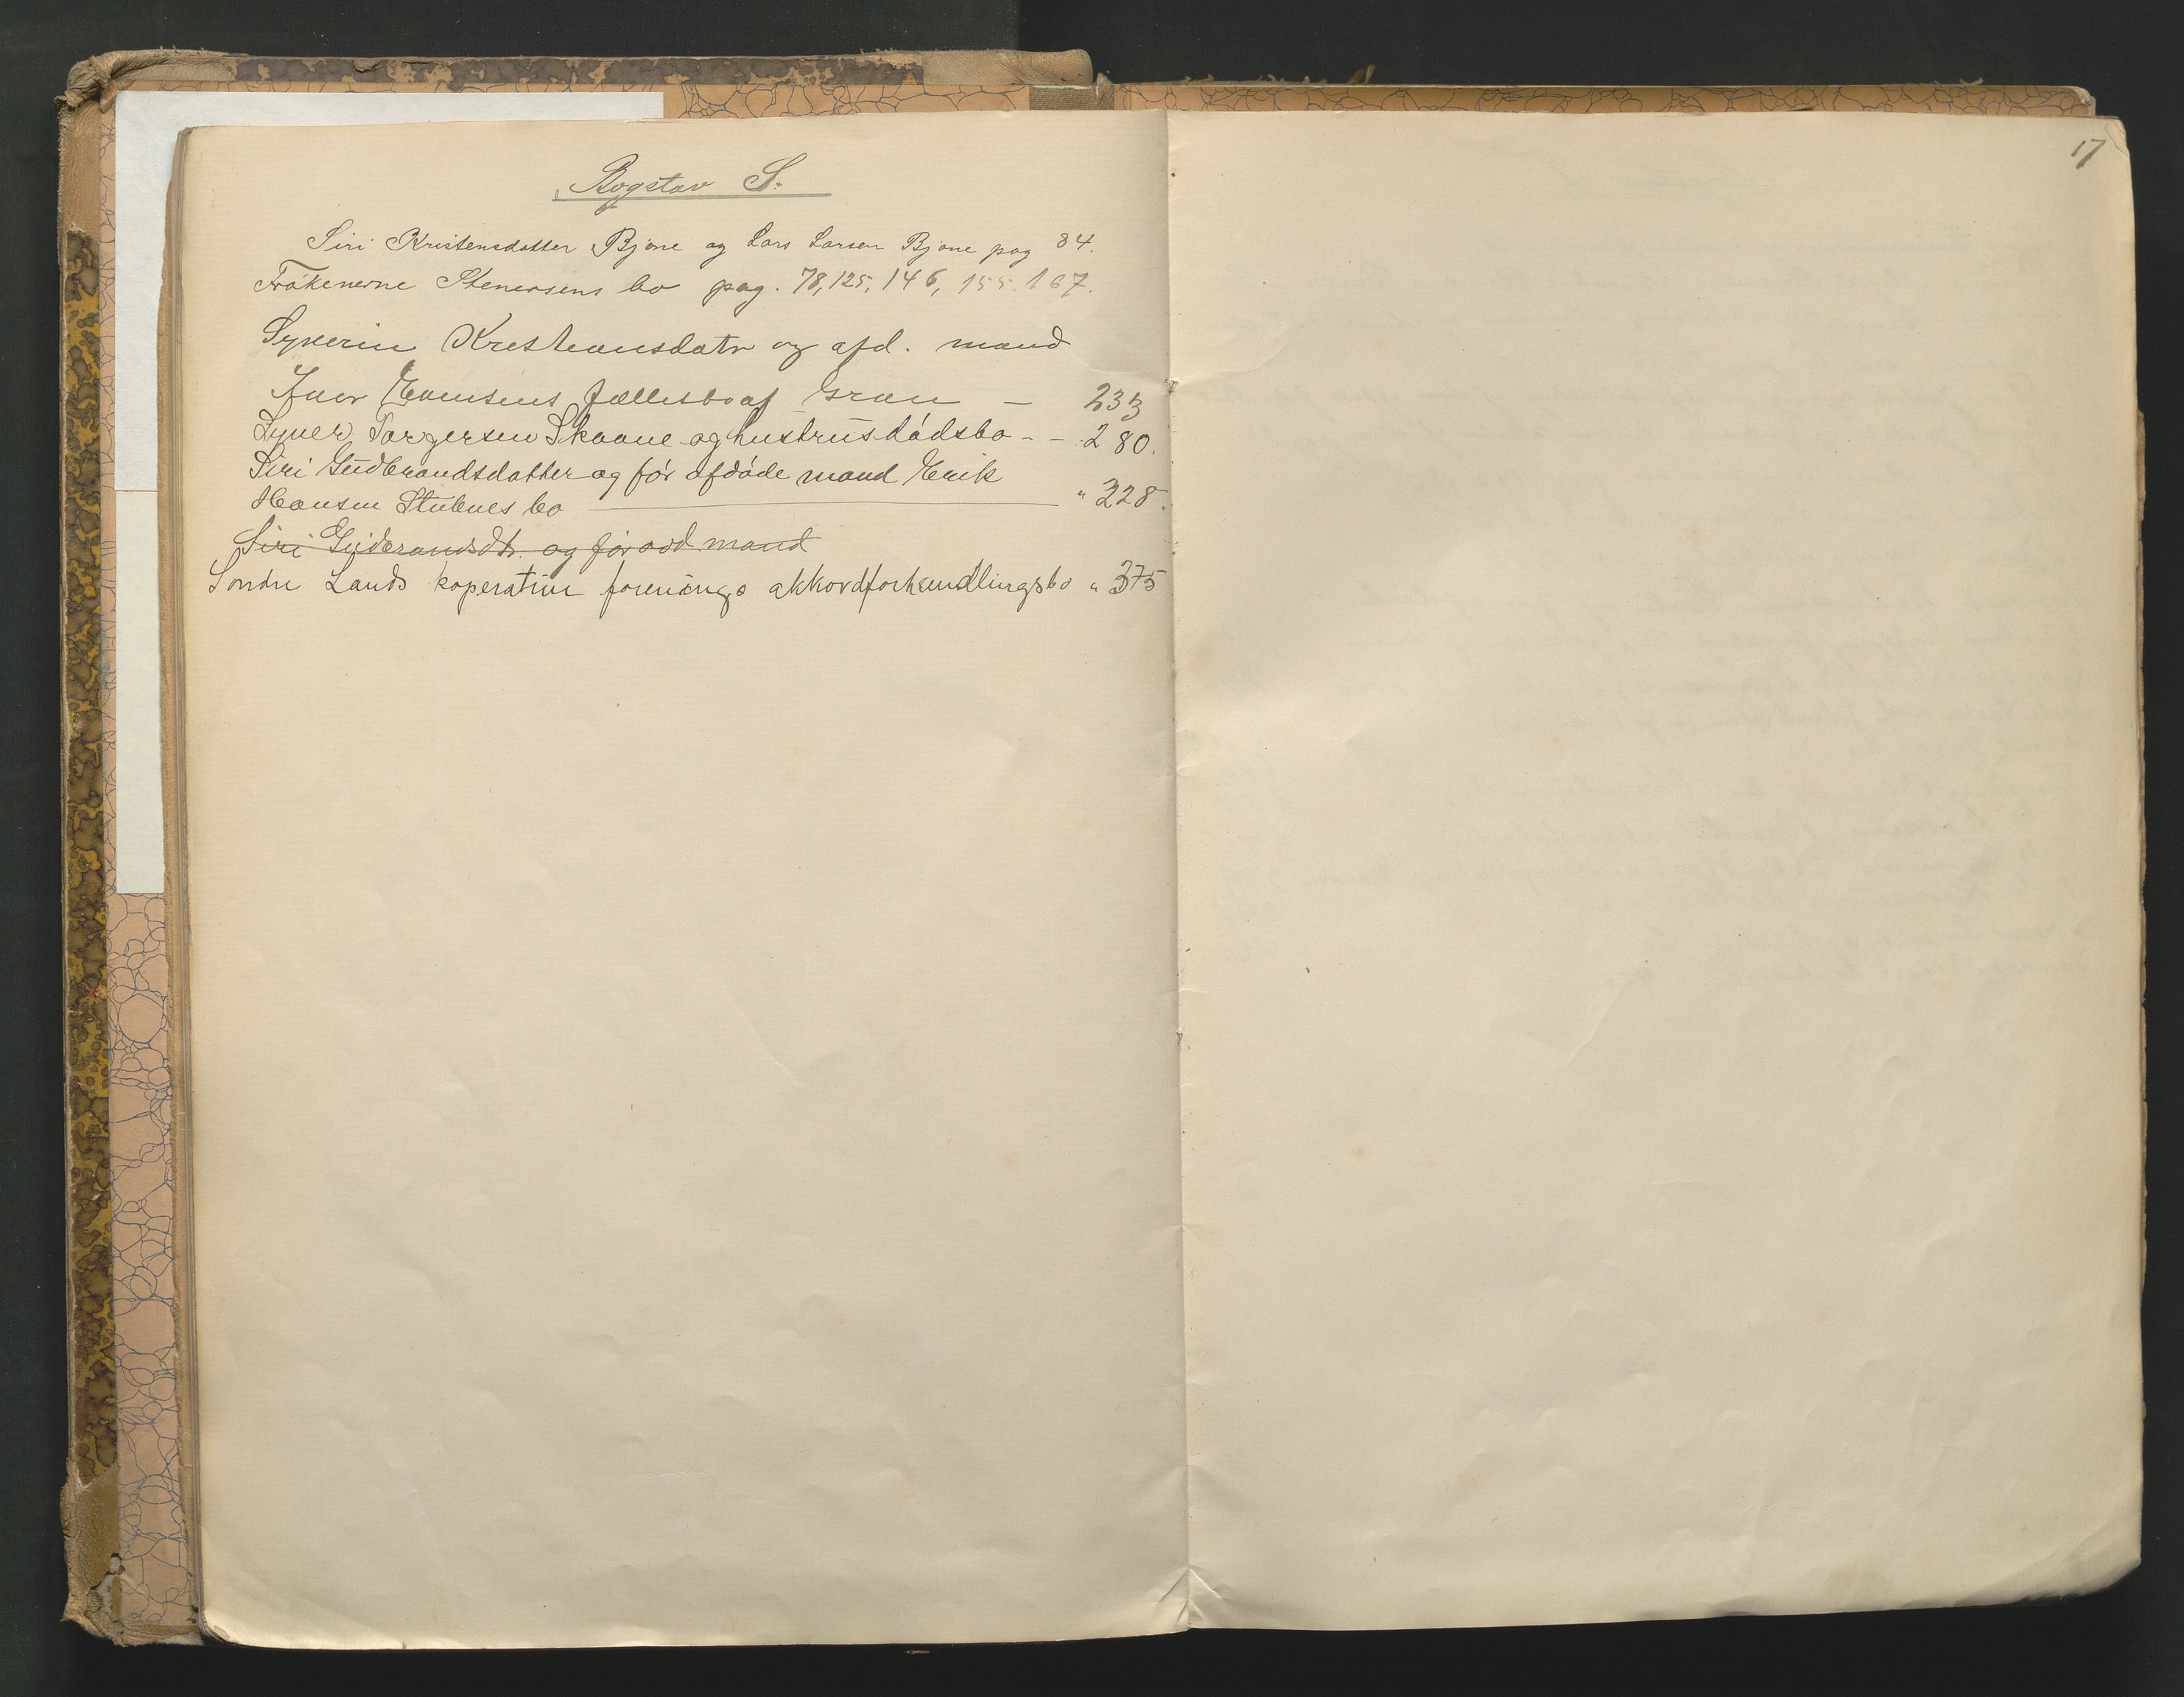 Bogstav S.
Siri Kristensdatter Bjone og Lars Larsen Bjone pag 84.
Frøkenerne Stenersens bo pag. 78, 125, 146, 155. 167.
Syverin Kristiansdatr og afd. mand
Iver Evensens fællesbo af Gran — 233
Syver Torgersen Skaane og hustrus dødsbo - - 280.
Siri Gudbrandsdatter og før afdøde mand Erik
Hansen Stubnes bo — " 328.
Siri Gudbrandsdtr. og før add mand
Søndre Lands koperative forenings akkordforhandlingsbo " 375
17